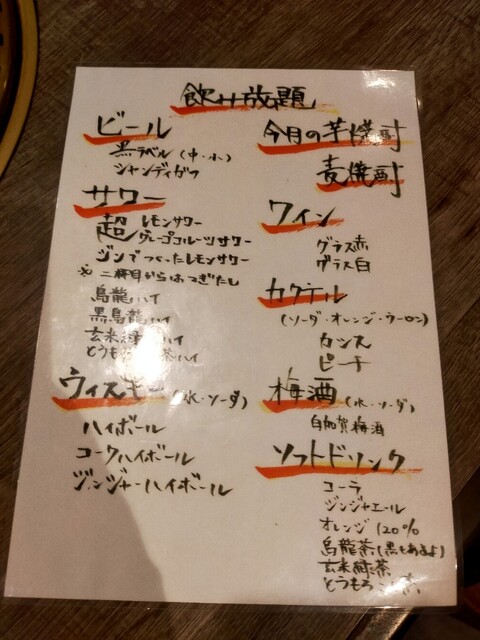 飲み放題
ビール
黒ラベル (中・小)
シャンディガフ
サワー
超 レモンサワー
グレープフルーツサワー
ジンでつくったレモンサワー
※ 二杯目からはつぎたし
烏龍ハイ
黒烏龍ハイ
玄米緑ハイ
とうもろ 茶ハイ
ウィスキー (水・ソーダ)
ハイボール
コークハイボール
ジンジャーハイボール
今月の芋焼酎
麦焼酎
ワイン
グラス赤
グラス白
カクテル
(ソーダ・オレンジ・ウーロン)
カシス
ピーチ
梅酒 (水・ソーダ)
白加賀梅酒
ソフトドリンク
コーラ
ジンジャエール
オレンジ 120%
烏龍茶(黒もあるよ)
玄米緑茶
とうもろ 茶